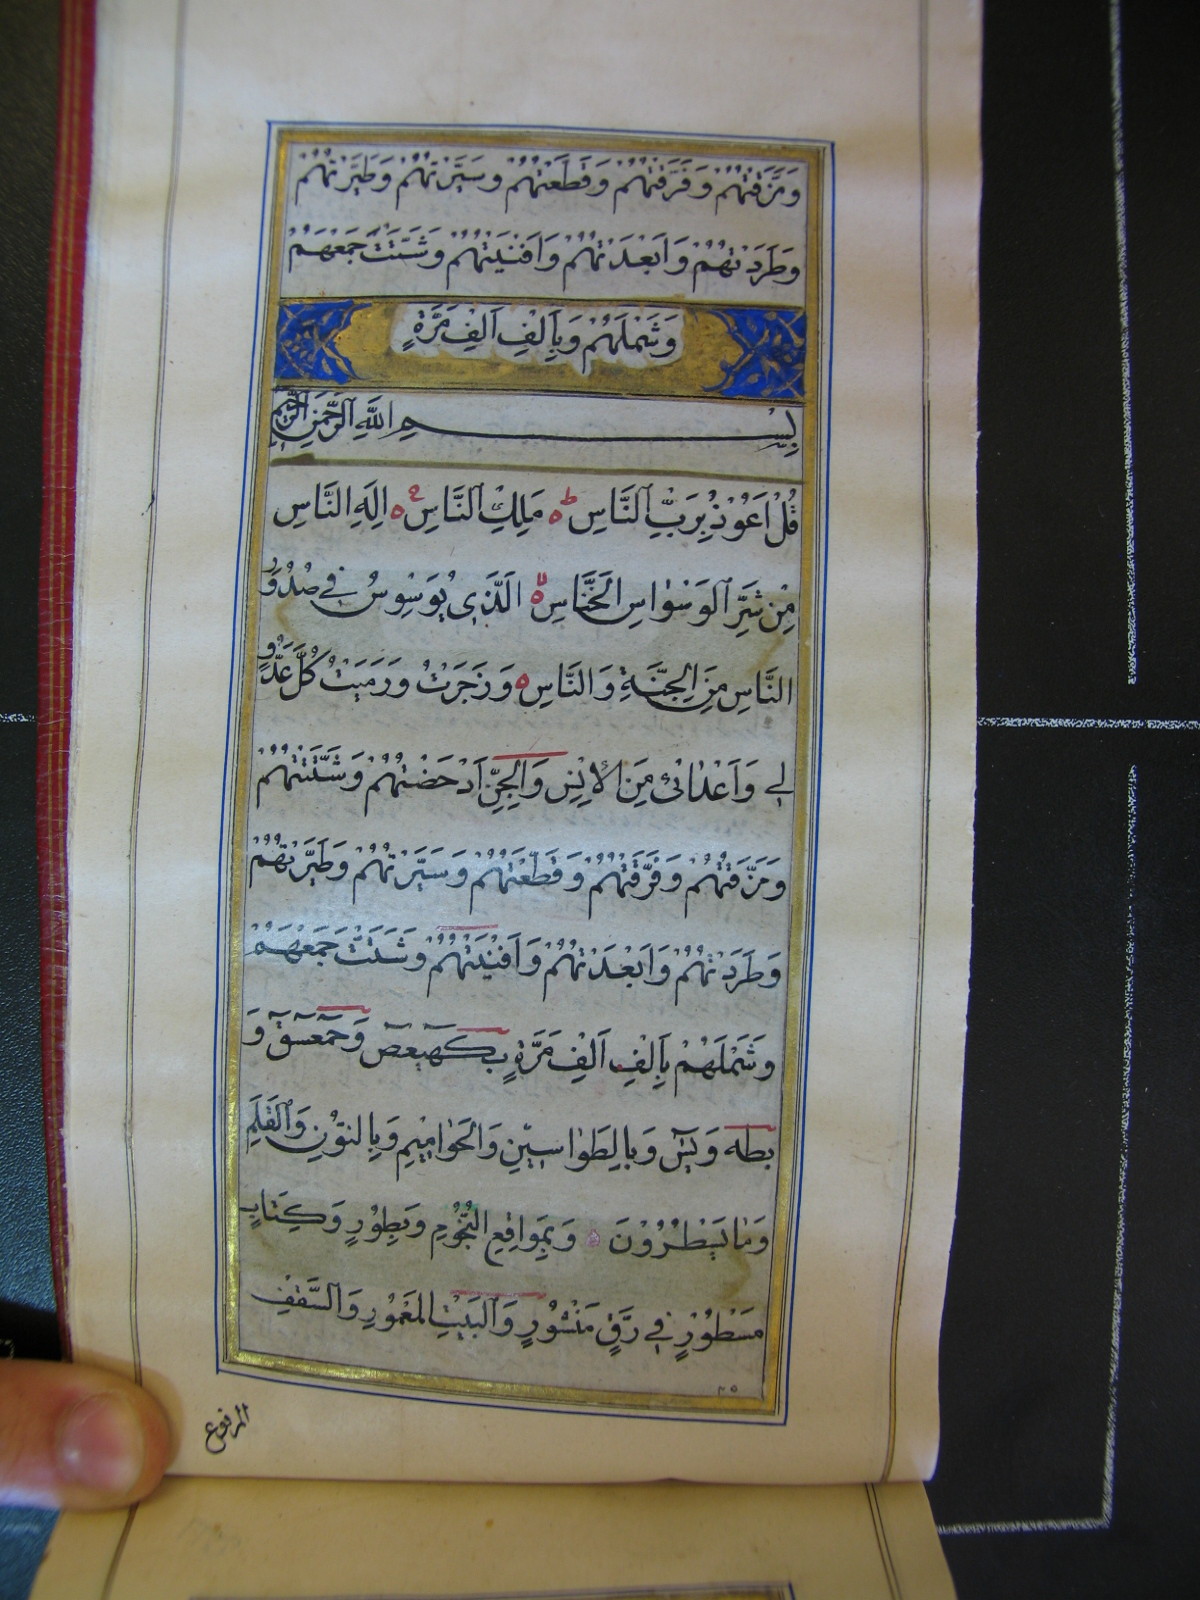 وَمَزَّقْتُهُمْ وَفَرَّقْتُهُمْ وَقَطَّعْتُهُمْ وَسَيَّرْتُهُمْ وَطَيَّرْتُهُمْ
وَطَرَدْتُهُمْ وَاَبْعَدْتُهُمْ وَاَفْنَيْتُهُمْ وَشَتَّتُّ جَمْعَهُمْ
وَشَمْلَهُمْ وَبِاَلْفِ اَلْفِ مَرَّةٍ
بِسْمِ اللّٰهِ الرَّحْمٰنِ الرَّحِيْمِ
قُلْ اَعُوْذُ بِرَبِّ النَّاسِ مَلِكِ النَّاسِ اِلٰهِ النَّاسِ
مِنْ شَرِّ الْوَسْوَاسِ الْخَنَّاسِ الَّذِيْ يُوَسْوِسُ فِيْ صُدُوْرِ
النَّاسِ مِنَ الْجِنَّةِ وَالنَّاسِ وَزَجَرْتُ وَرَمَيْتُ كُلَّ عَدُوٍّ
لِيْ وَاَعْدَائِيْ مِنَ الْاِنْسِ وَالْجِنِّ اَدْحَضْتُهُمْ وَشَتَّتْتُهُمْ
وَمَزَّقْتُهُمْ وَفَرَّقْتُهُمْ وَقَطَّعْتُهُمْ وَسَيَّرْتُهُمْ وَطَيَّرْتُهُمْ
وَطَرَدْتُهُمْ وَاَبْعَدْتُهُمْ وَاَفْنَيْتُهُمْ وَشَتَّتُّ جَمْعَهُمْ
وَشَمْلَهُمْ بِاَلْفِ اَلْفِ مَرَّةٍ بِكٓهٰيٰعٓصٓ وَحٰمٓعٓسٓقٓ وَ
بِطٰهٰ وَيٰسٓ وَبِالطَّوَاسِيْنِ وَالْحَوَامِيْمِ وَبِالنُّوْنِ وَالْقَلَمِ
وَمَا يَسْطُرُوْنَ وَبِمَوَاقِعِ النُّجُوْمِ وَبِطُوْرٍ وَكِتَابٍ
مَسْطُوْرٍ فِيْ رَقٍّ مَنْشُوْرٍ وَالْبَيْتِ الْمَعْمُوْرِ وَالسَّقْفِ
المرفوع